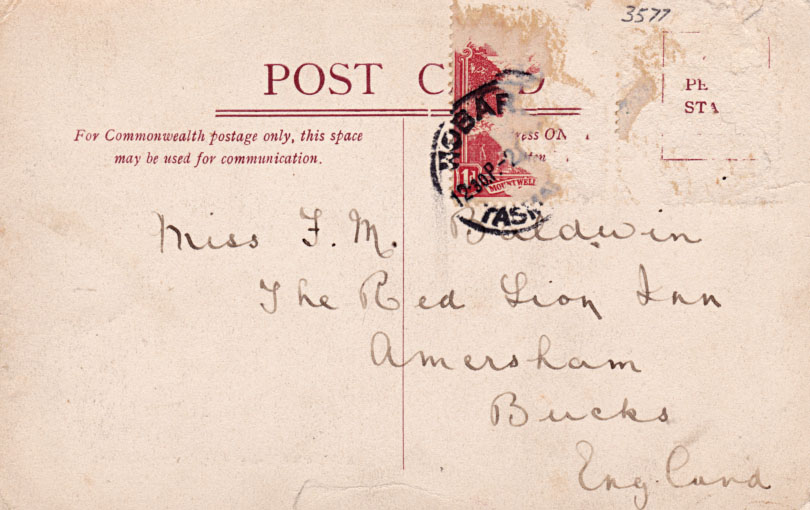 3577
POST C D
PE
STA
For Commonwealth postage only, this space
may be used for communication.
ess ON
HOBAR
12·30 P -2
TASM
1d
MOUNT WELL
Miss F. M. Baldwin
The Red Lion Inn
Amersham
Bucks
England